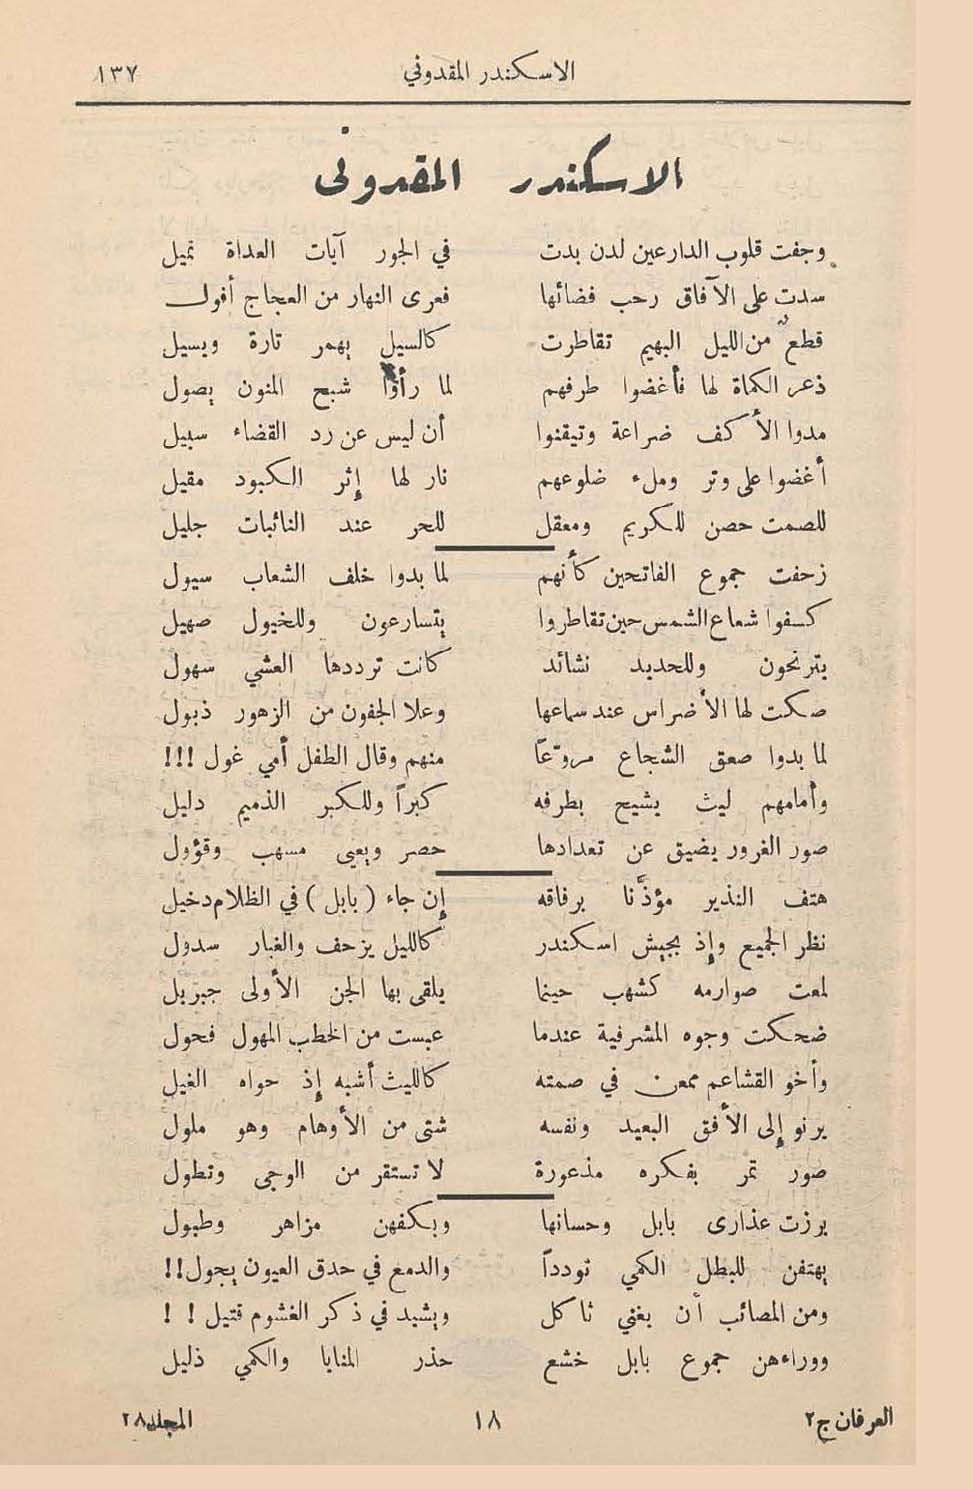 الاسكندر المقدوني ١٣٧
الاسكندر المقدوني
وجفت قلوب الدارعين لدن بدت في الجور آيات العداة تميل
سدت على الآفاق رحب فضائها فعرى النهار من العجاج أفول
قطع من الليل البهيم تقاطرت كالسيل يهمر تارة ويسيل
ذعر الكماة لها فأغضوا طرفهم لما رأوا شبح المنون يصول
مدوا الأكف ضراعة وتيقنوا أن ليس عن رد القضاء سبيل
أغضوا على وتر وملء ضلوعهم نار لها إثر الكبود مقيل
للصمت حصن للكريم ومعقل للحر عند النائبات جليل
زحفت جموع الفاتحين كأنهم لما بدوا خلف الشعاب سيول
كسفوا شعاع الشمس حين تقاطروا يتسارعون وللخيول صهيل
يترنحون وللحديد نشائد كانت ترددها العشي سهول
صكت لها الأضراس عند سماعها وعلا الجفون من الزهور ذبول
لما بدوا صعق الشجاع مروّعاً منهم وقال الطفل أمي غول !!!
وأمامهم ليث يشيح بطرفه كبراً وللكبر الذميم دليل
صور الغرور يضيق عن تعدادها حصر ويعيى مسهب وقؤول
هتف النذير مؤذّنا برفاقه إن جاء ( بابل ) في الظلام دخيل
نظر الجميع وإذ بجيش اسكندر كالليل يزحف والغبار سدول
لمعت صوارمه كشهب حينما يلقى بها الجن الأولى جبريل
ضحكت وجوه المشرفية عندما عبست من الخطب المهول فحول
وأخو القشاعم ممعن في صمته كالليث أشبه إذ حواه الغيل
يرنو إلى الأفق البعيد ونفسه شتى من الأوهام وهو ملول
صور تمر بفكره مذعورة لا تستقر من الوجى وتطول
برزت عذارى بابل وحسانها وبكفهن مزاهر وطبول
يهتفن للبطل الكمي توددآ والدمع في حدق العيون يجول!!
ومن المصائب أن يغني ثاكل ويشيد في ذكر الغشوم قتيل ! !
ووراءهن جموع بابل خشع حذر المنايا والكمي ذليل
العرفان ج٢ ١٨ المجلد٢٨